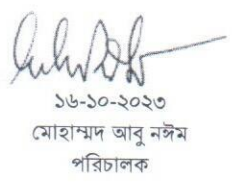 ১৬-১০-২০২৩
মোহাম্মদ আবু নঈম
পরিচালক